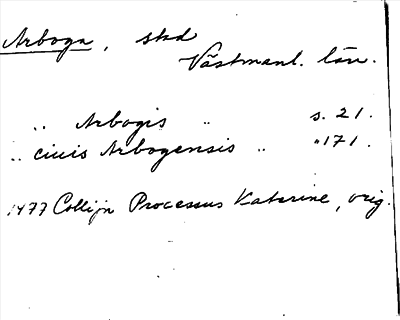 Arboga, stad
Västmanl. län.
" Arbogis " s. 21.
" ciuis Arbogensis " "171.
1477 Collijn Processus Katerine, orig.